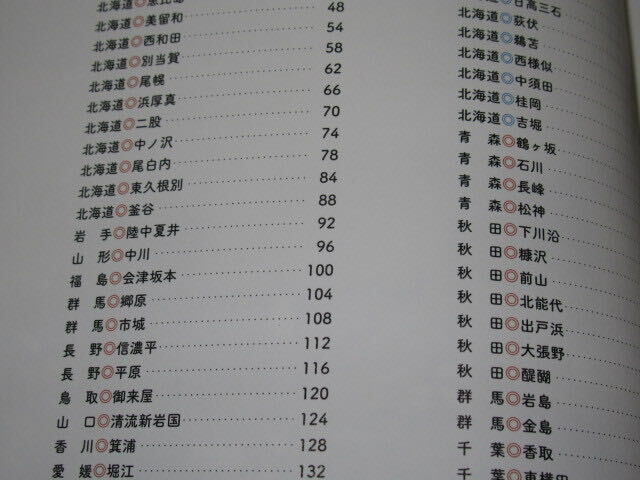 北海道◎美留和 48
北海道◎西和田 54
北海道◎別当賀 58
北海道◎尾幌 62
北海道◎浜厚真 66
北海道◎二股 70
北海道◎中ノ沢 74
北海道◎尾白内 78
北海道◎東久根別 84
北海道◎釜谷 88
岩手◎陸中夏井 92
山形◎中川 96
福島◎会津坂本 100
群馬◎郷原 104
群馬◎市城 108
長野◎信濃平 112
長野◎平原 116
鳥取◎御来屋 120
山口◎清流新岩国 124
香川◎箕浦 128
愛媛◎堀江 132
北海道◎日高三石
北海道◎荻伏
北海道◎鵜苫
北海道◎西様似
北海道◎中須田
北海道◎桂岡
北海道◎吉堀
青森◎鶴ヶ坂
青森◎石川
青森◎長峰
青森◎松神
秋田◎下川沿
秋田◎糠沢
秋田◎前山
秋田◎北能代
秋田◎出戸浜
秋田◎大張野
秋田◎醍醐
群馬◎岩島
群馬◎金島
千葉◎香取
千葉◎東横田